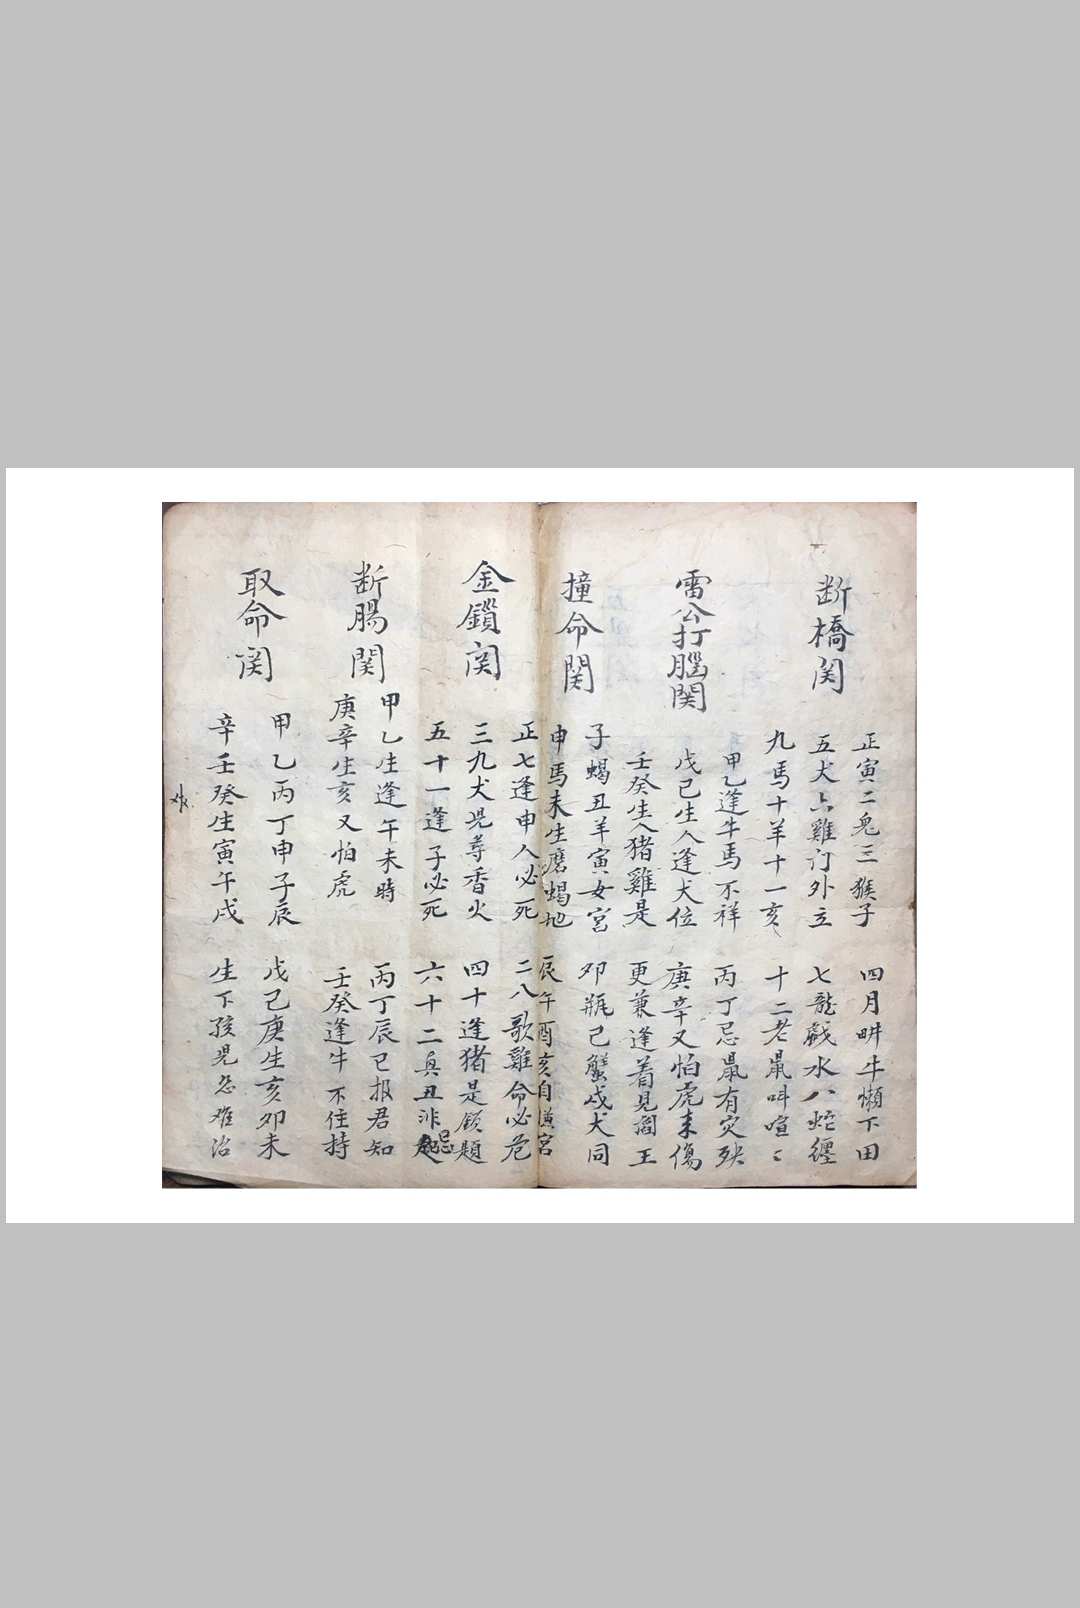 断橋関
正寅二兔三猴子 四月畊牛懶下田
五犬六雞门外立 七龍戯水八蛇纒
九馬十羊十一亥 十二老鼠呌喧〻
雷公打腦関
甲乙逢牛馬不祥 丙丁忌鼠有灾殃
戊己生人逢犬位 庚辛又怕虎来傷
壬癸生人猪雞是 更兼逢着見閻王
撞命関
子蝎丑羊寅女宮 夘瓶巳蟹戌犬同
申馬未生磨蝎地 辰午酉亥自 宮
金鎖関
正七逢申人必死 二八歌雞命必危
三九犬児尋香火 四十逢猪是 題
五十一逢子必死 六十二与丑 忌
断腸関
甲乙生逢午未時 丙丁辰巳报君知
庚辛生亥又怕虎 壬癸逢牛不住持
取命関
甲乙丙丁申子辰 戊己庚生亥夘未
辛壬癸生寅午戌 生下孩児急难治